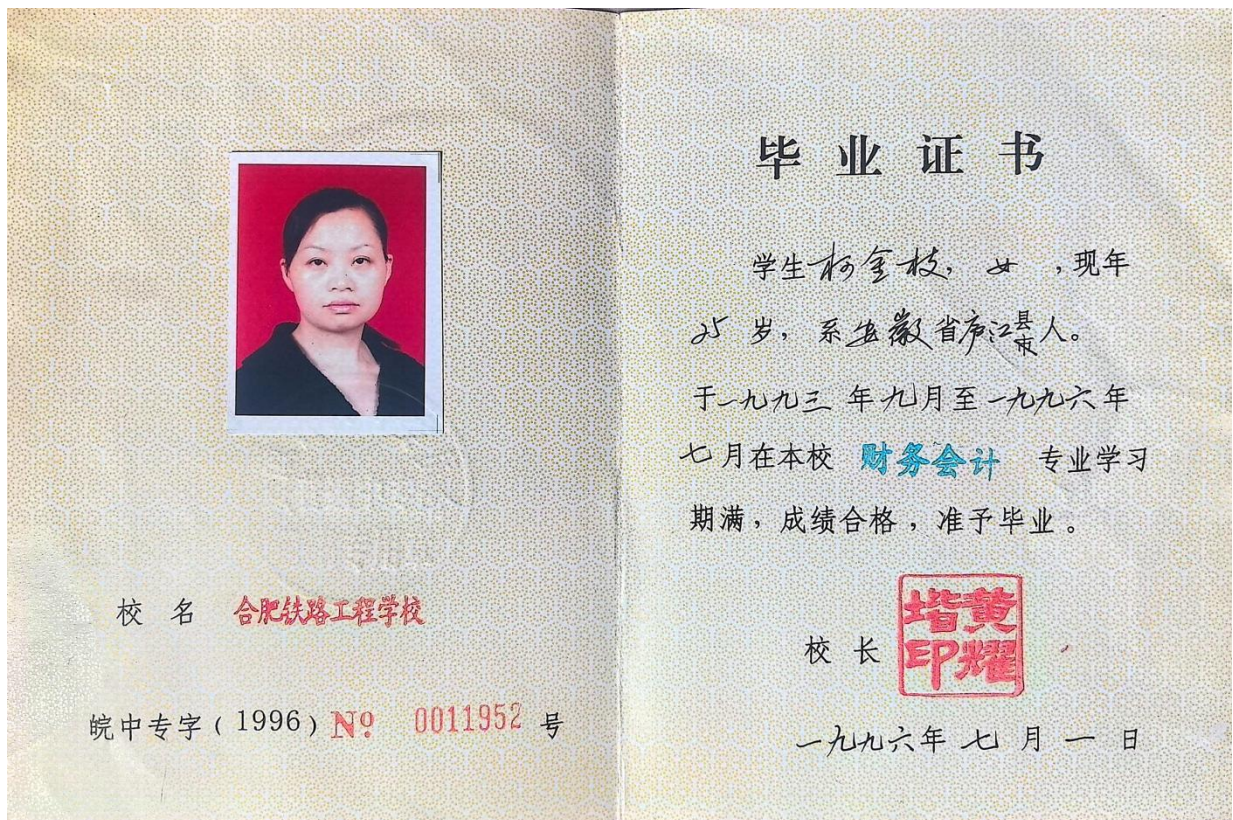 校 名 合肥铁路工程学校
皖中专字(1996)№ 0011952 号
毕业证书
学生柯金枝,女,现年
25 岁,系安徽省庐江县人。
市
于一九九三年九月至一九九六年
七月在本校 财务会计 专业学习
期满,成绩合格,准予毕业。
校 长 黄耀堦印
一九九六年七月一日